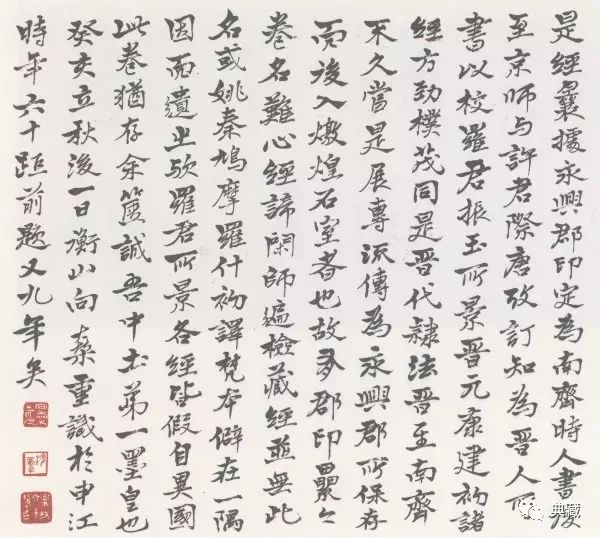 是經曩據永興郡印定為南齊時人書後
至京師與許君際唐攷訂知為晉人所
書以校羅君振玉所景晉元康建初諸
經方勁樸茂同是晉代隸法晉至南齊
不久當是展專流傳為永興郡所保存
而後入燉煌石室者也故郡印纍〻
卷名難心經諦閑師遍檢藏經並無此
名或姚秦鳩摩羅什初譯梵本僻在一隅
因而遺之歟羅君所景各經皆假自異國
此卷猶存余篋誠吾中土第一墨皇也
癸亥立秋後一日衡山向燊重識於申江
時年六十距前題又九年矣
典藏